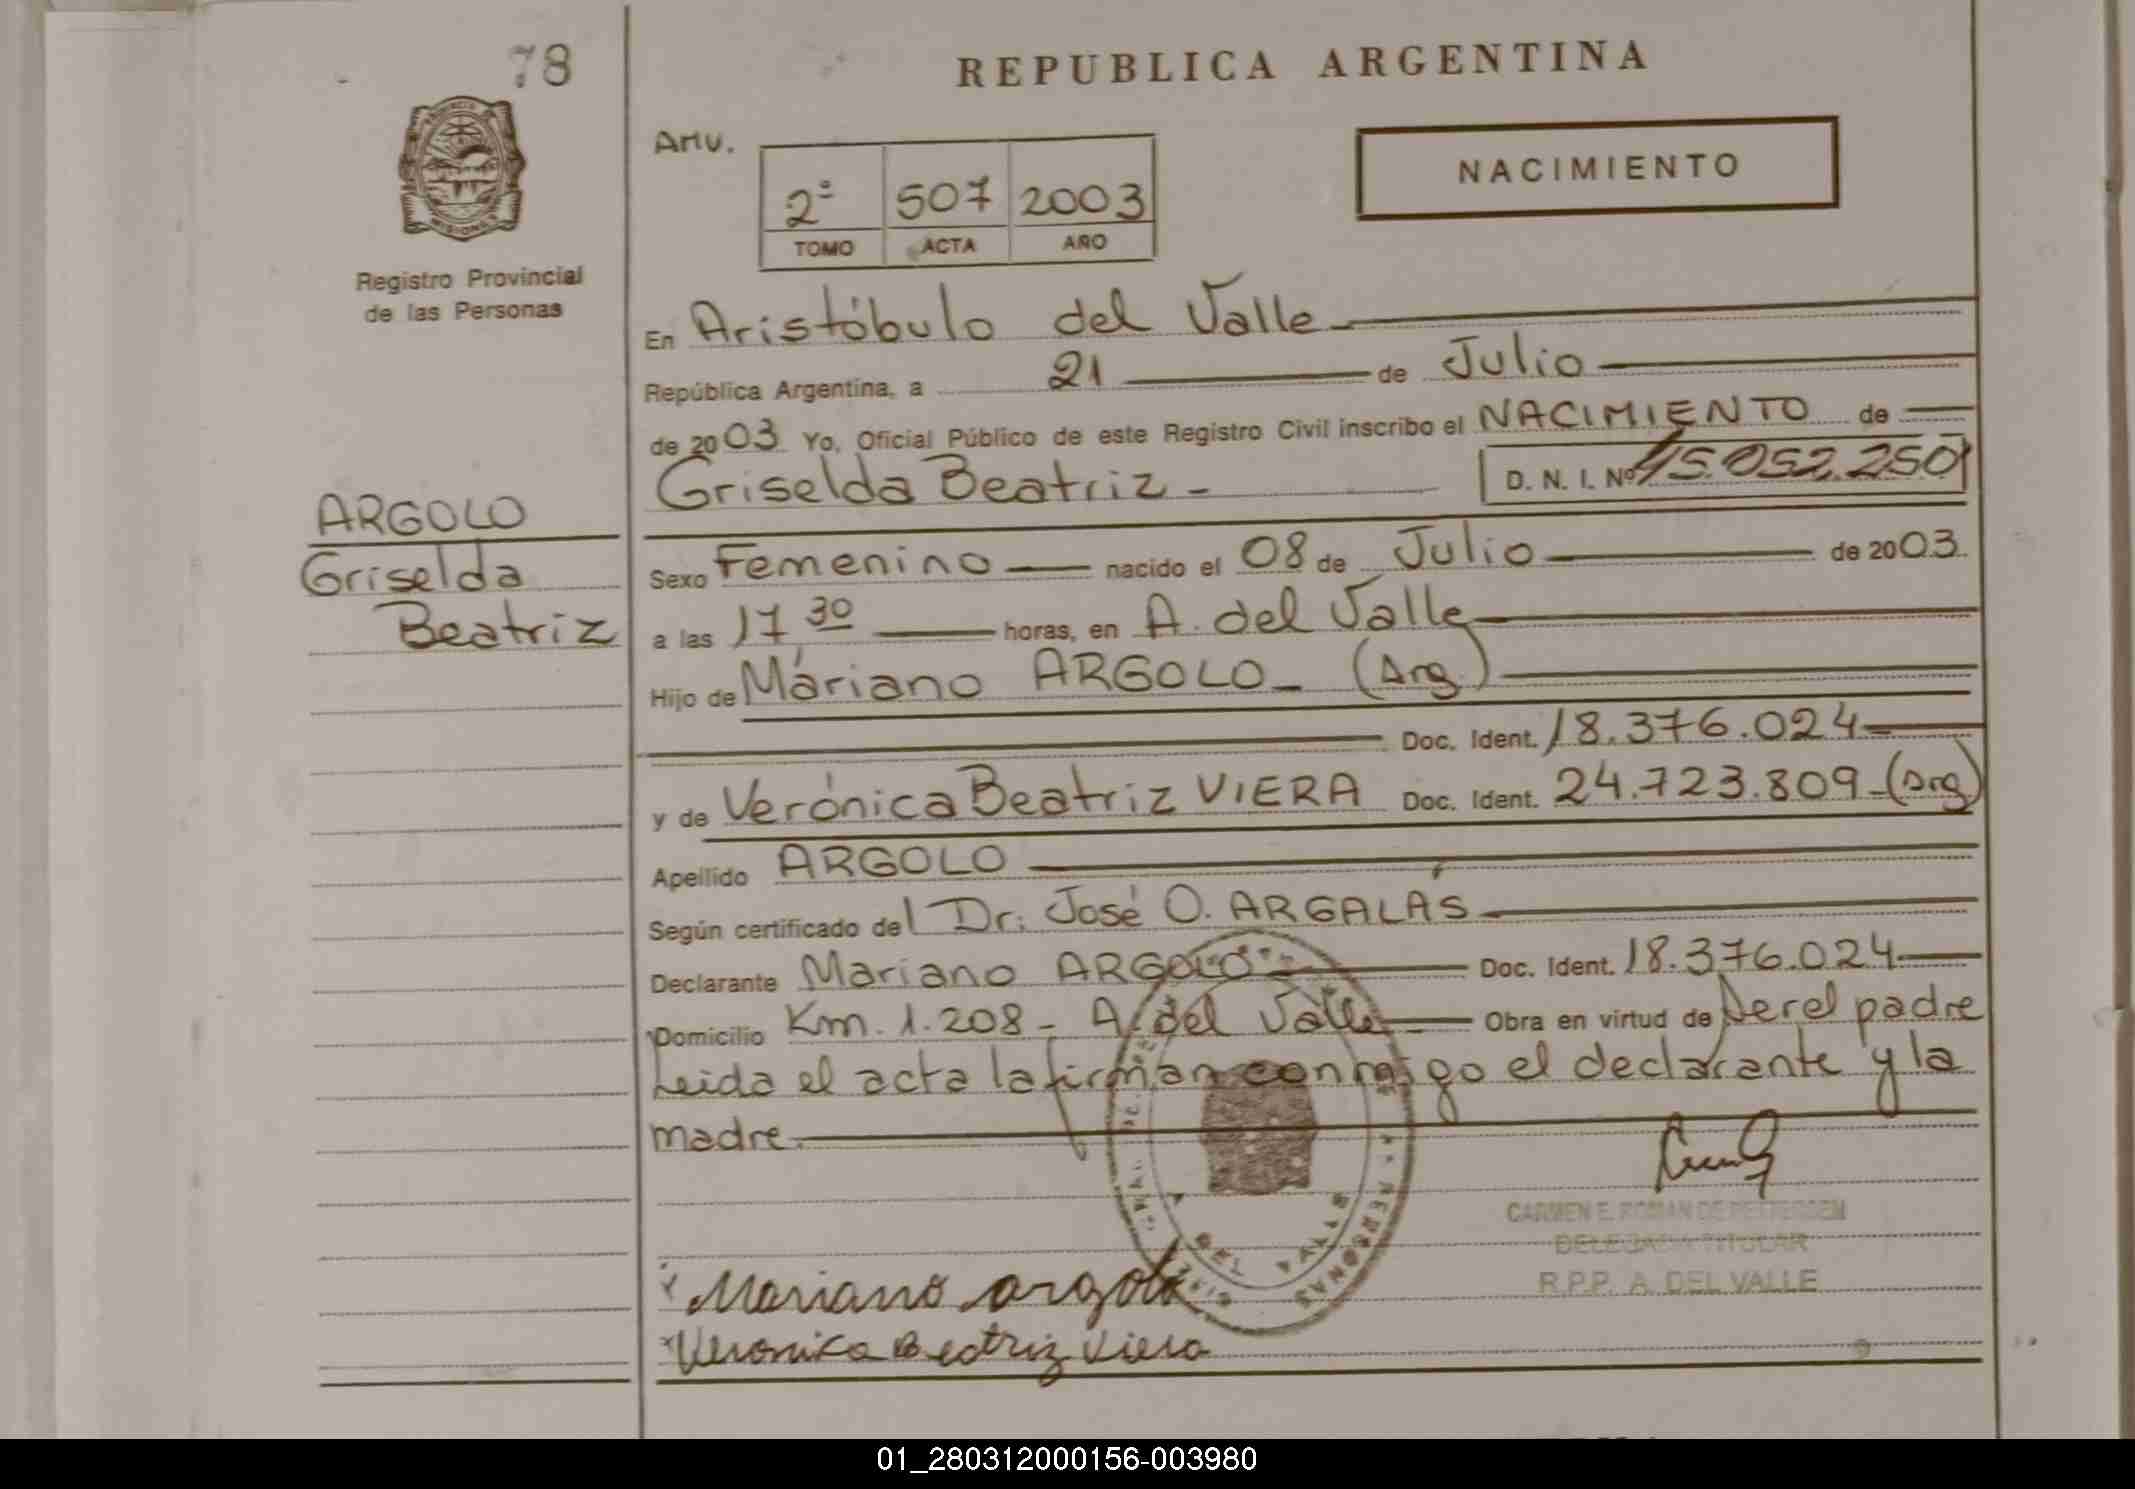 78
REPUBLICA ARGENTINA
NACIMIENTO
2º 507 2003
TOMO ACTA AÑO
Registro Provincial
de las Personas
En Aristóbulo del Valle
República Argentina, a 21 de Julio
de 2003 Yo, Oficial Público de este Registro Civil inscribo el NACIMIENTO de
Griselda Beatriz - D. N. I. Nº 45.052.250
ARGOLO
Griselda
Beatriz
Sexo Femenino nacido el 08 de Julio de 2003.
a las 17 30 horas, en A. del Valle
Hijo de Mariano ARGOLO - (Arg.)
Doc. Ident. 18.376.024
y de Verónica Beatriz VIERA Doc. Ident. 24.723.809 - (Arg)
Apellido ARGOLO
Según certificado del Dr. José O. ARGALÁS
Declarante Mariano ARGOLO Doc. Ident. 18.376.024
Domicilio Km. 1.208 - A. del Valle Obra en virtud de ser el padre
Leida el acta la firman conmigo el declarante y la
madre.
CARMEN E. ROMAN DE
DELEGADA TITULAR
R.P.P. A. DEL VALLE
Mariano argolo
Veronica Beatriz Viera
01_280312000156-003980